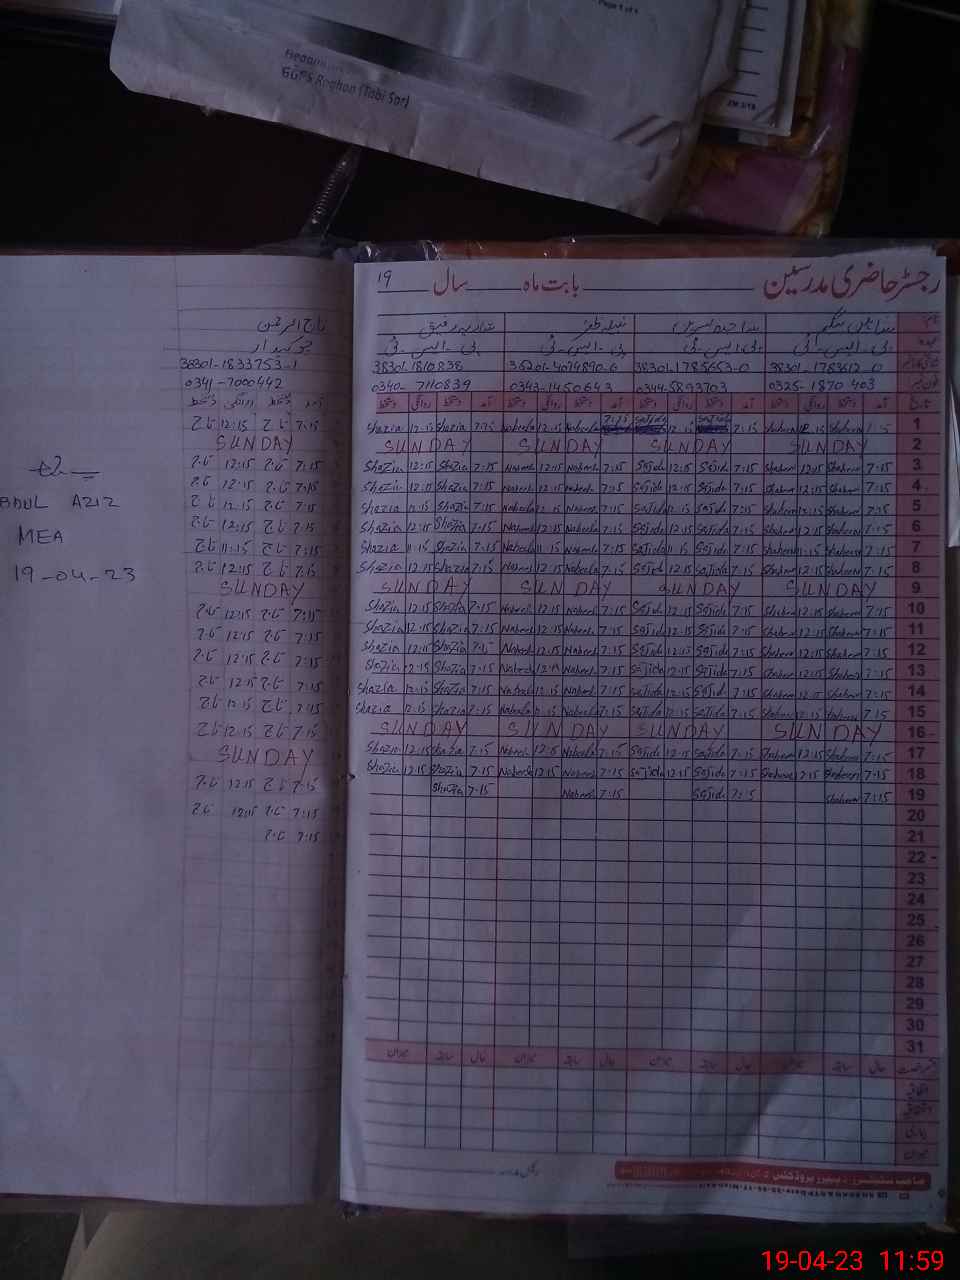 Page 1 of 1
GGPS Raghan (Tabi Sar)
رجسٹر حاضری مدرسین بابت ماہ سال 19
پی۔ایس۔ٹی پی۔ایس۔ٹی پی۔ایس۔ٹی پی۔ایس۔ٹی
38301-1810838 38301-1785653-0 38301-1783612-0
0340-7110839 0343-1450643 0344-5893703 0325-1870403
تاریخ آمد دستخط روانگی دستخط آمد دستخط روانگی دستخط آمد دستخط روانگی دستخط آمد دستخط روانگی دستخط
Shazia 12:15 Shazia 7:15 Nabeela 12:15 Nabeela 7:15 Sajida 12:15 Sajida 7:15 Shaheen 12:15 Shaheen 7:15 1
SUNDAY SUNDAY SUNDAY SUNDAY 2
Shazia 12:15 Shazia 7:15 Nabeela 12:15 Nabeela 7:15 Sajida 12:15 Sajida 7:15 Shaheen 12:15 Shaheen 7:15 3
Shazia 12:15 Shazia 7:15 Nabeela 12:15 Nabeela 7:15 Sajida 12:15 Sajida 7:15 Shaheen 12:15 Shaheen 7:15 4
Shazia 12:15 Shazia 7:15 Nabeela 12:15 Nabeela 7:15 Sajida 12:15 Sajida 7:15 Shaheen 12:15 Shaheen 7:15 5
Shazia 12:15 Shazia 7:15 Nabeela 12:15 Nabeela 7:15 Sajida 12:15 Sajida 7:15 Shaheen 12:15 Shaheen 7:15 6
Shazia 11:15 Shazia 7:15 Nabeela 11:15 Nabeela 7:15 Sajida 11:15 Sajida 7:15 Shaheen 11:15 Shaheen 7:15 7
Shazia 12:15 Shazia 7:15 Nabeela 12:15 Nabeela 7:15 Sajida 12:15 Sajida 7:15 Shaheen 12:15 Shaheen 7:15 8
SUNDAY SUNDAY SUNDAY SUNDAY 9
Shazia 12:15 Shazia 7:15 Nabeela 12:15 Nabeela 7:15 Sajida 12:15 Sajida 7:15 Shaheen 12:15 Shaheen 7:15 10
Shazia 12:15 Shazia 7:15 Nabeela 12:15 Nabeela 7:15 Sajida 12:15 Sajida 7:15 Shaheen 12:15 Shaheen 7:15 11
Shazia 12:15 Shazia 7:15 Nabeela 12:15 Nabeela 7:15 Sajida 12:15 Sajida 7:15 Shaheen 12:15 Shaheen 7:15 12
Shazia 12:15 Shazia 7:15 Nabeela 12:15 Nabeela 7:15 Sajida 12:15 Sajida 7:15 Shaheen 12:15 Shaheen 7:15 13
Shazia 12:15 Shazia 7:15 Nabeela 12:15 Nabeela 7:15 Sajida 12:15 Sajida 7:15 Shaheen 12:15 Shaheen 7:15 14
Shazia 12:15 Shazia 7:15 Nabeela 12:15 Nabeela 7:15 Sajida 12:15 Sajida 7:15 Shaheen 12:15 Shaheen 7:15 15
SUNDAY SUNDAY SUNDAY SUNDAY 16
Shazia 12:15 Shazia 7:15 Nabeela 12:15 Nabeela 7:15 Sajida 12:15 Sajida 7:15 Shaheen 12:15 Shaheen 7:15 17
Shazia 12:15 Shazia 7:15 Nabeela 12:15 Nabeela 7:15 Sajida 12:15 Sajida 7:15 Shaheen 12:15 Shaheen 7:15 18
Shazia 7:15 Nabeela 7:15 Sajida 7:15 Shaheen 7:15 19
20
21
22
23
24
25
26
27
28
29
30
31
تاج الرحمن
چوکیدار
38301-1833753-1
0341-7000442
آمد دستخط روانگی دستخط
12:15 7:15
SUNDAY
12:15 7:15
12:15 7:15
12:15 7:15
12:15 7:15
11:15 7:15
12:15 7:15
SUNDAY
12:15 7:15
12:15 7:15
12:15 7:15
12:15 7:15
12:15 7:15
12:15 7:15
SUNDAY
12:15 7:15
12:15 7:15
7:15
ABDUL AZIZ
MEA
19-04-23
19-04-23 11:59